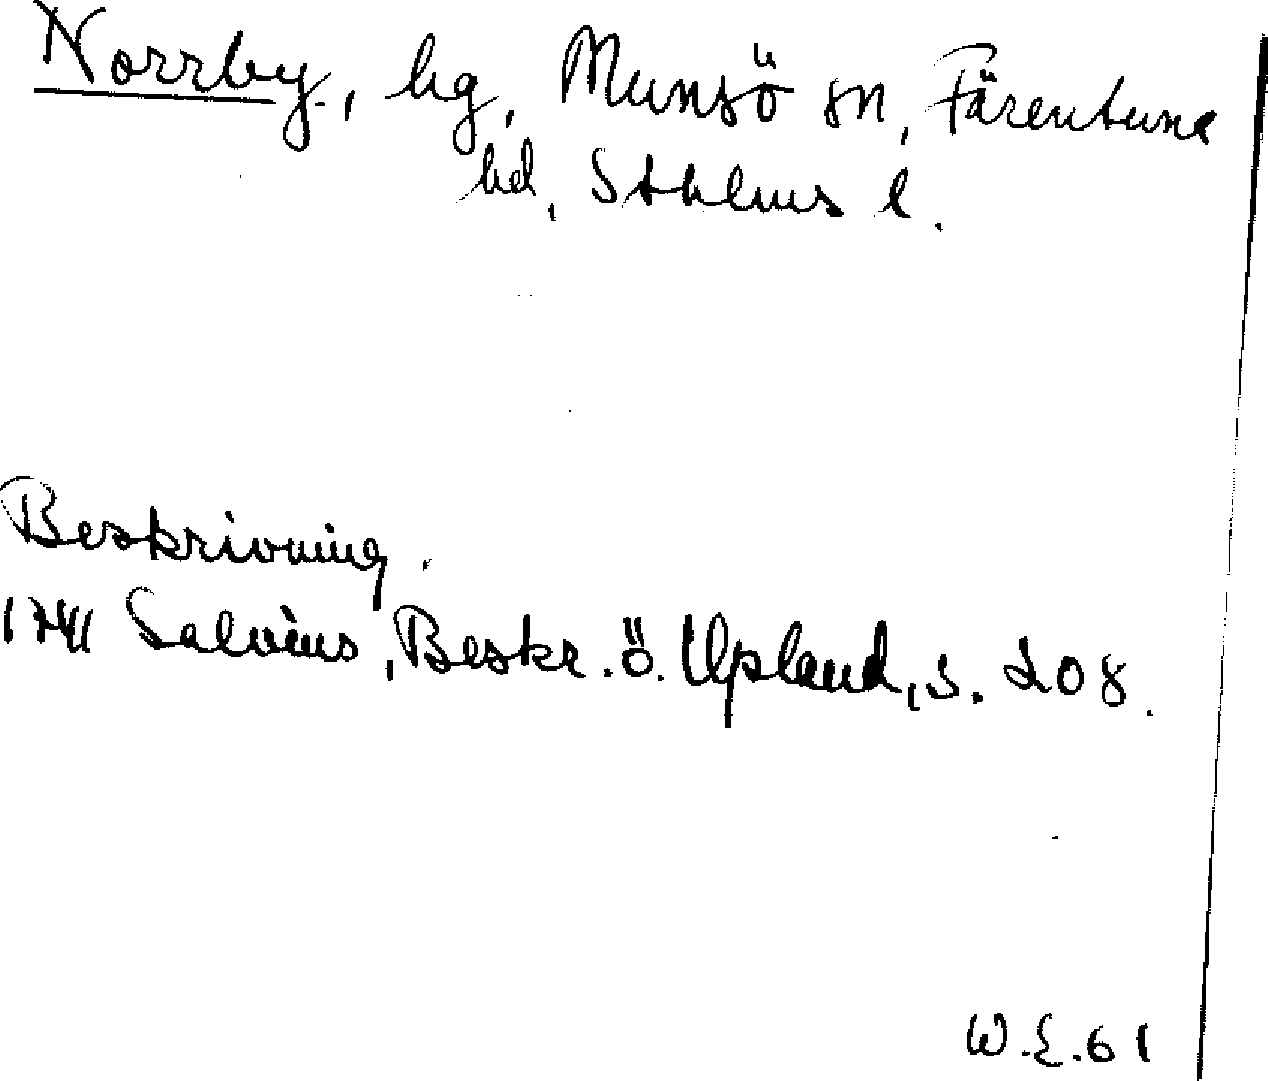 Norrby, hg, Munsö sn, Färentuna
hd, Sthlms l.
Beskrivning.
1741 Salvius, Beskr. ö. Upland, s. 208.
W.E. 61